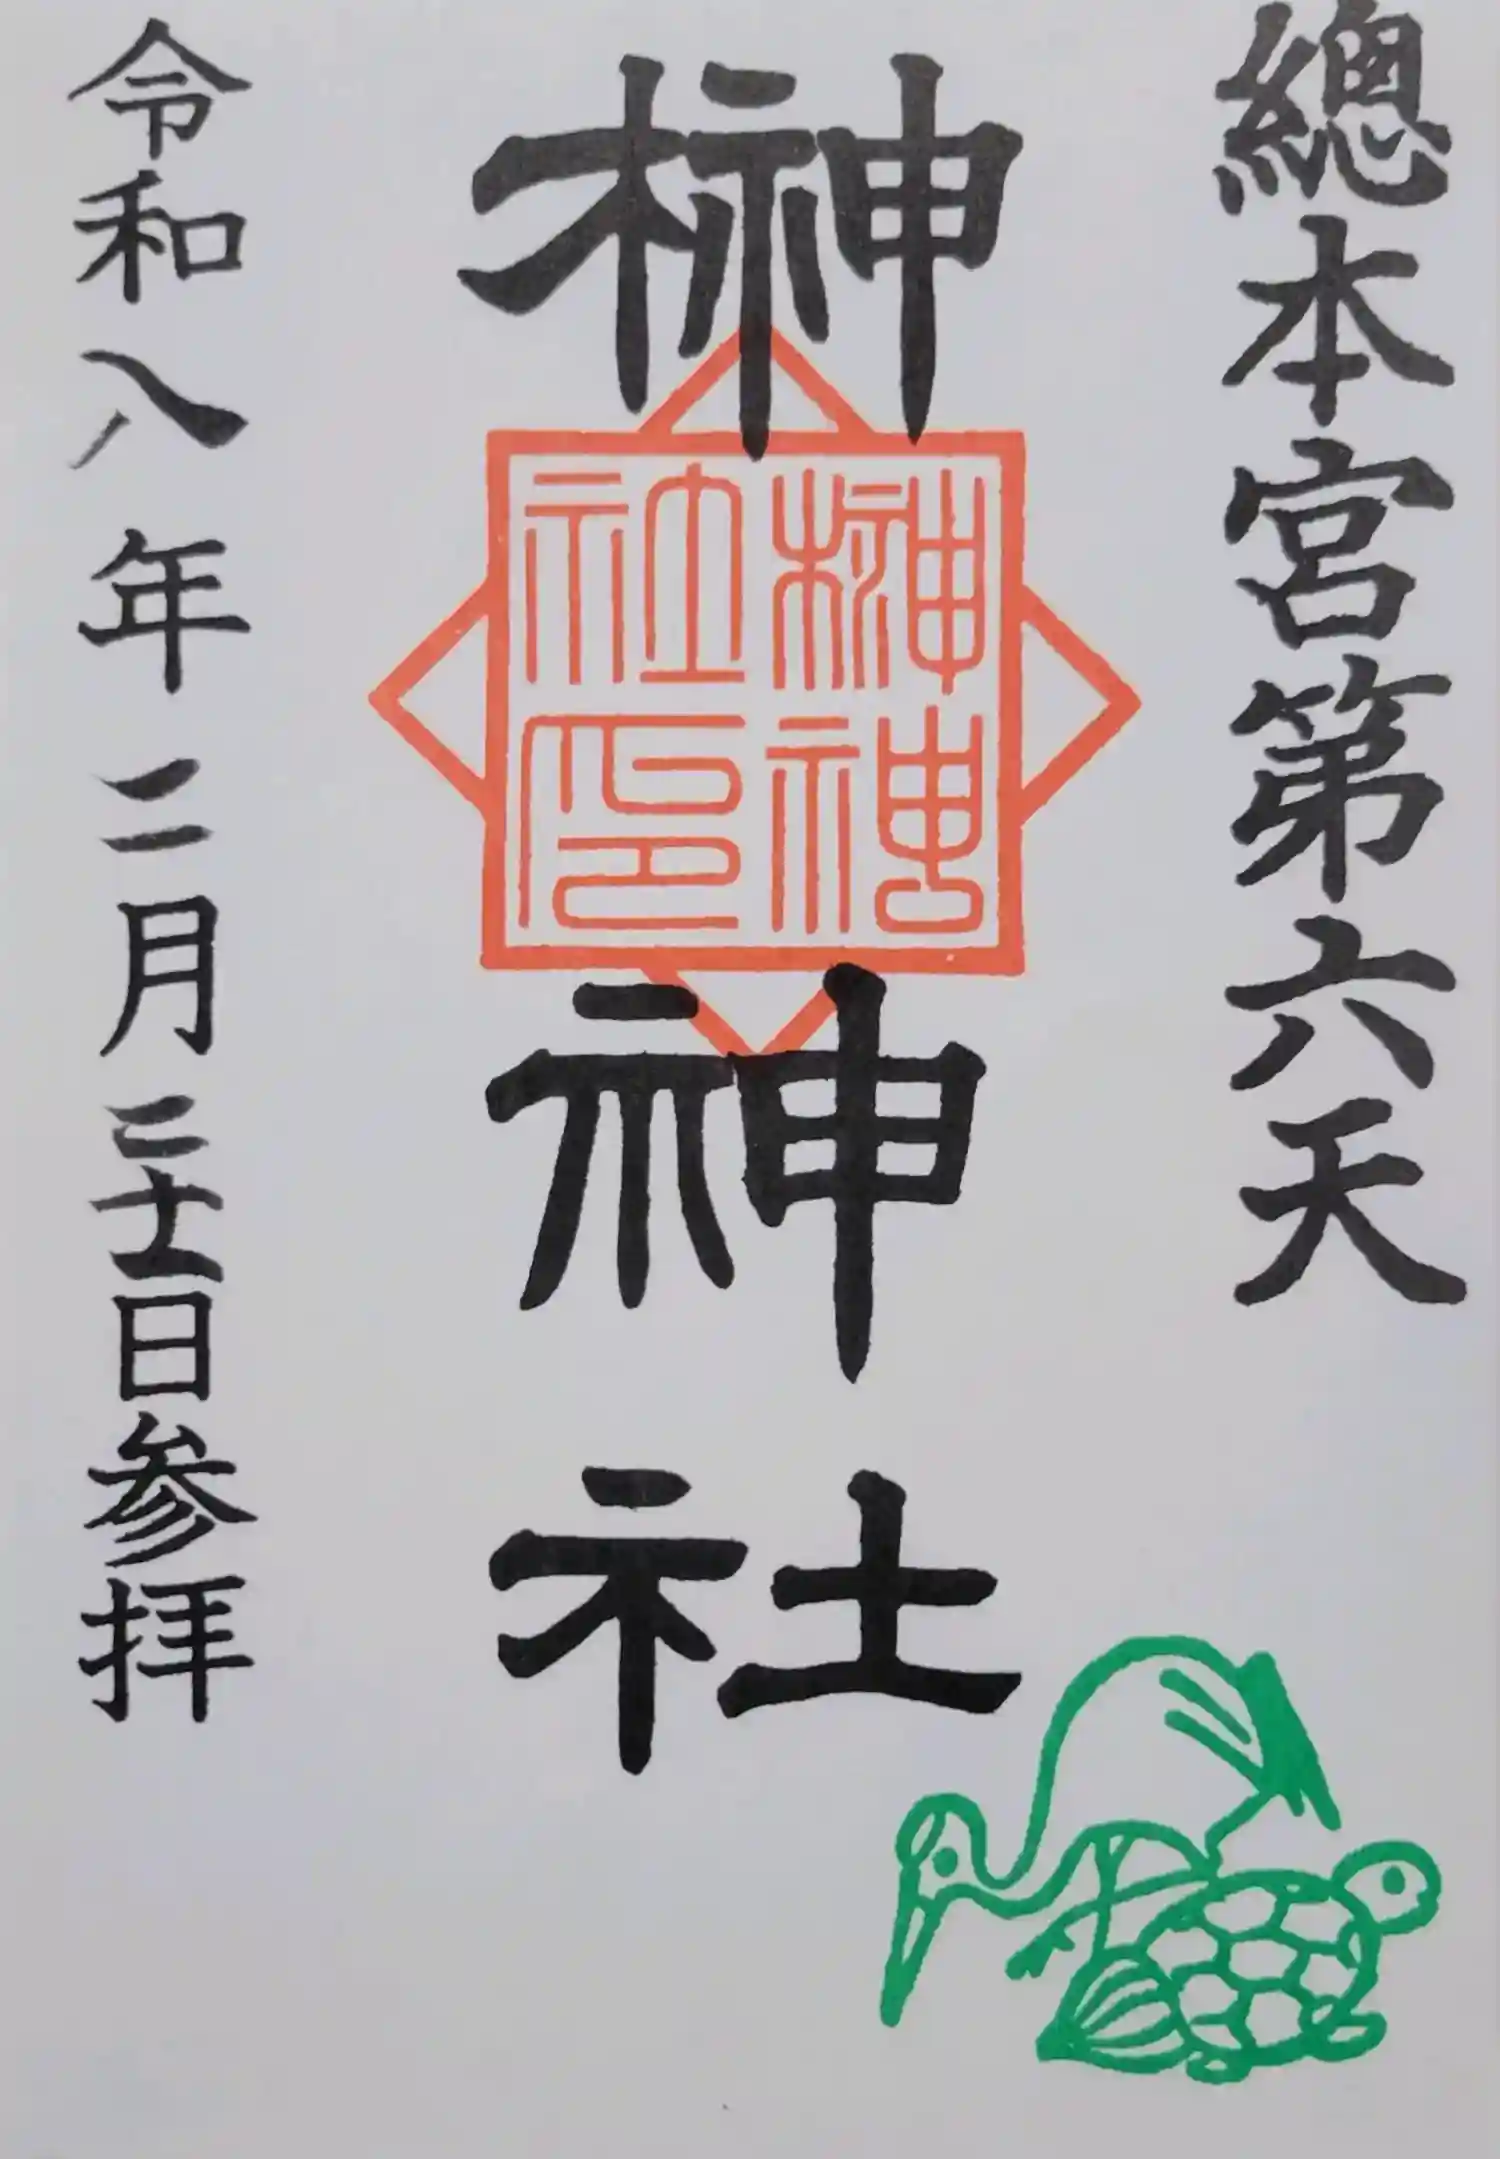 總本宮第六天
榊神社
榊神社印
令和八年二月二十二日参拝